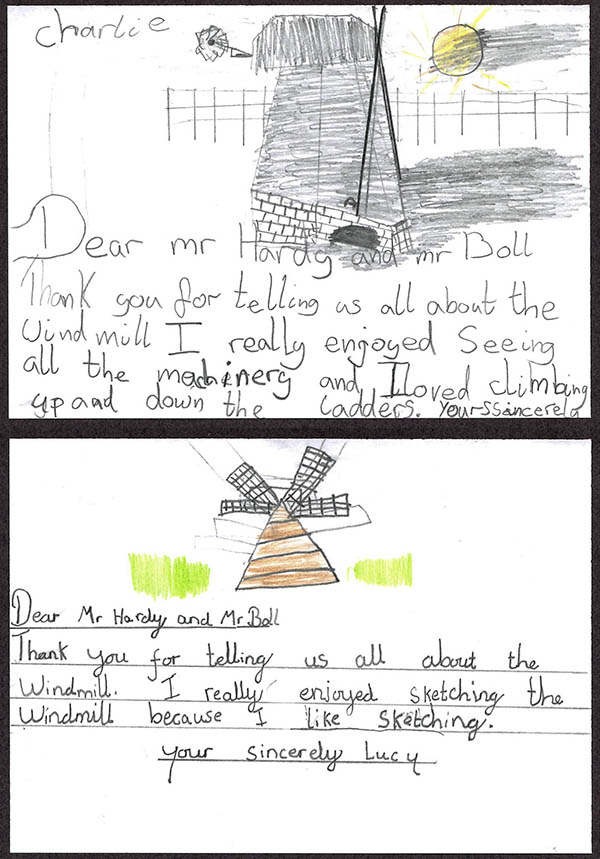 charlie
Dear mr Hardy and mr Boll
Thank you for telling us all about the
windmill I really enjoyed Seeing
all the machinery and I loved climbing
up and down the ladders. yours sincerely
Dear Mr Hardy and Mr Boll
Thank you for telling us all about the
Windmill. I really enjoyed sketching the
Windmill because I like sketching.
your sincerely Lucy